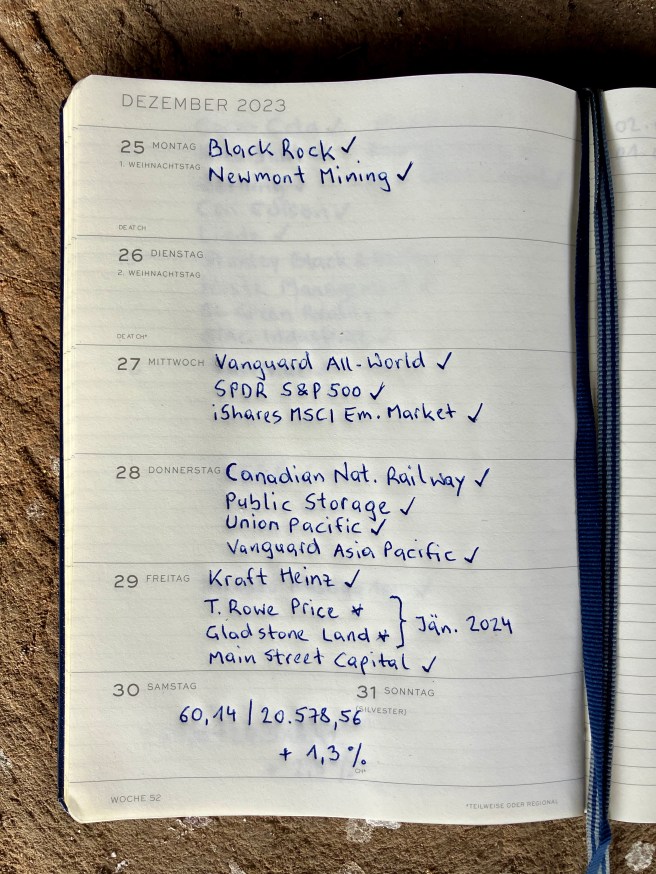 DEZEMBER 2023
25 MONTAG BlackRock ✓
1. WEIHNACHTSTAG Newmont Mining ✓
DE AT CH
26 DIENSTAG
2. WEIHNACHTSTAG
DE AT CH*
27 MITTWOCH Vanguard All-World ✓
SPDR S&P 500 ✓
iShares MSCI Em. Market ✓
28 DONNERSTAG Canadian Nat. Railway ✓
Public Storage ✓
Union Pacific ✓
Vanguard Asia Pacific ✓
29 FREITAG Kraft Heinz ✓
T. Rowe Price *
Gladstone Land * } Jän. 2024
Main Street Capital ✓
30 SAMSTAG 31 SONNTAG
(SILVESTER)
60,14 | 20.578,56
+ 1,3 %
CH*
WOCHE 52 *TEILWEISE ODER REGIONAL